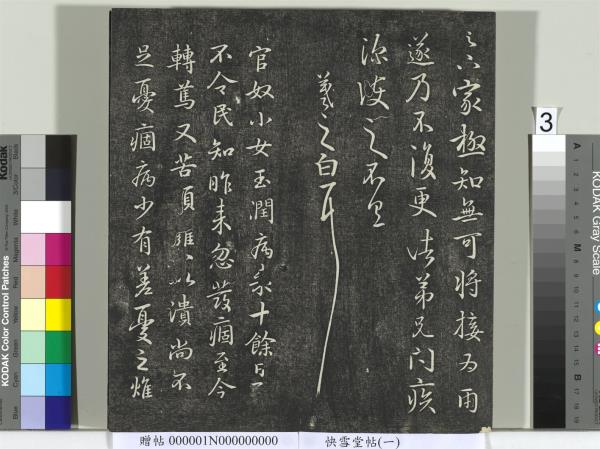 云下家極知無可將接為雨
遂乃不復更諸弟兄問疾
深護之不具
羲之白耳
官奴小女玉潤病來十餘日了
不令民知昨來忽發痼至今
轉篤又苦頭癰以潰尚不
足憂痼病少有差憂之燋
贈帖 000001N000000000
快雪堂帖(一)
3
KODAK Color Control Patches
Kodak
Blue
Cyan
Green
Yellow
Red
Magenta
White
3/Color
Black
KODAK Gray Scale
A 1 2 3 4 5 6 M 8 9 10 11 12 13 14 15 B 17 18 19